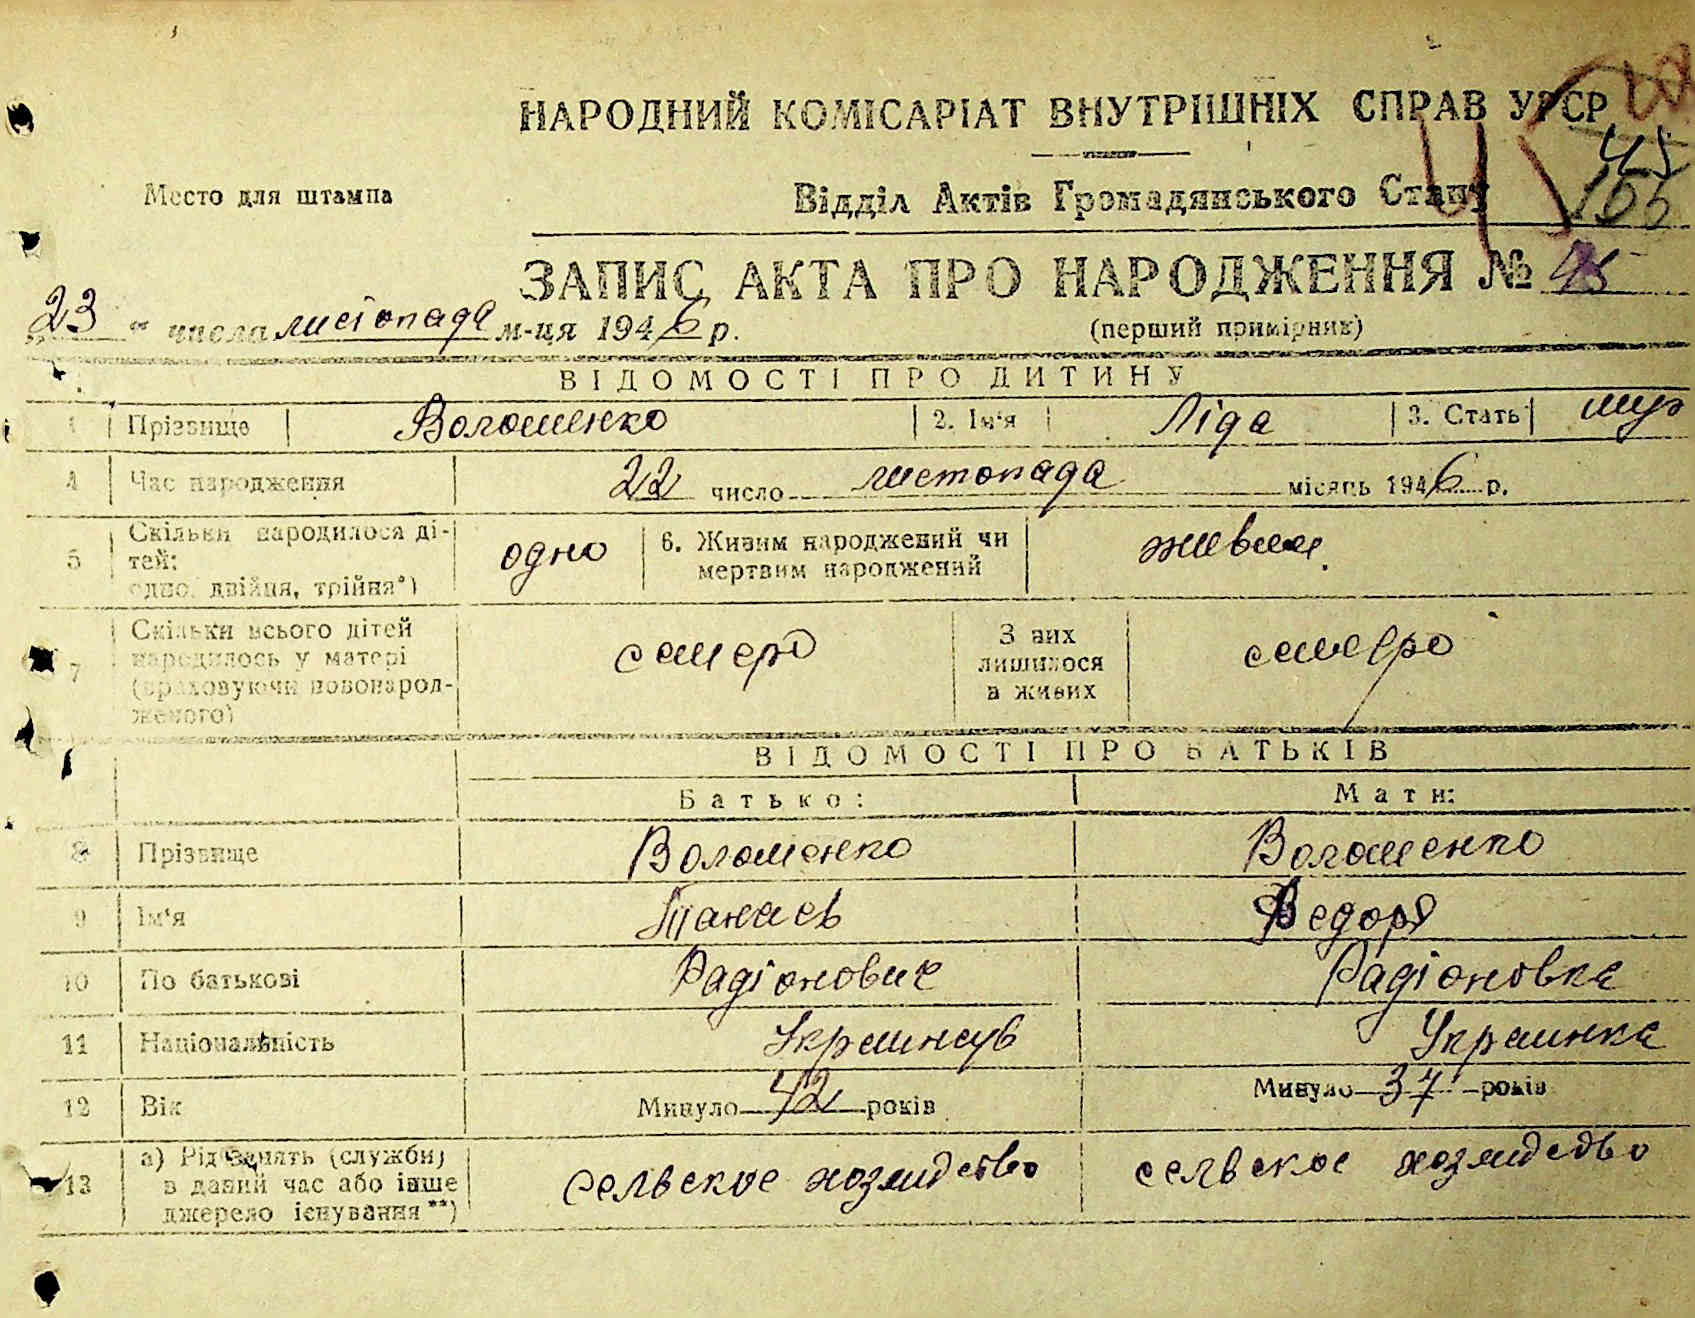 НАРОДНИЙ КОМІСАРІАТ ВНУТРІШНІХ СПРАВ УРСР
45
Место для штампа
Відділ Актів Громадянського Стану
166
ЗАПИС АКТА ПРО НАРОДЖЕННЯ № 45
„23“ числа листопада м-ця 1946 р.
(перший примірник)
ВІДОМОСТІ ПРО ДИТИНУ
1 Прізвище Волошенко 2. Ім'я Ліда 3. Стать
4 Час народження 22 число листопада місяць 1946 р.
5 Скільки народилося ді-
тей:
одно, двійня, трійня*)
одно
6. Живим народжений чи
мертвим народжений
живим
7 Скільки всього дітей
народилось у матері
(враховуючи новонарод-
женого)
семеро
З них
лишилося
в живих
семеро
ВІДОМОСТІ ПРО БАТЬКІВ
Батько: Мати:
8 Прізвище Волошенко Волошенко
9 Ім'я Танасв Федоря
10 По батькові Радіонович Радіоновна
11 Національність Украинцв Украинка
12 Вік Минуло 42 років Минуло 37 років
13 а) Рід занять (служби)
в даний час або інше
джерело існування**)
селвское хозяйство селвское хозяйство